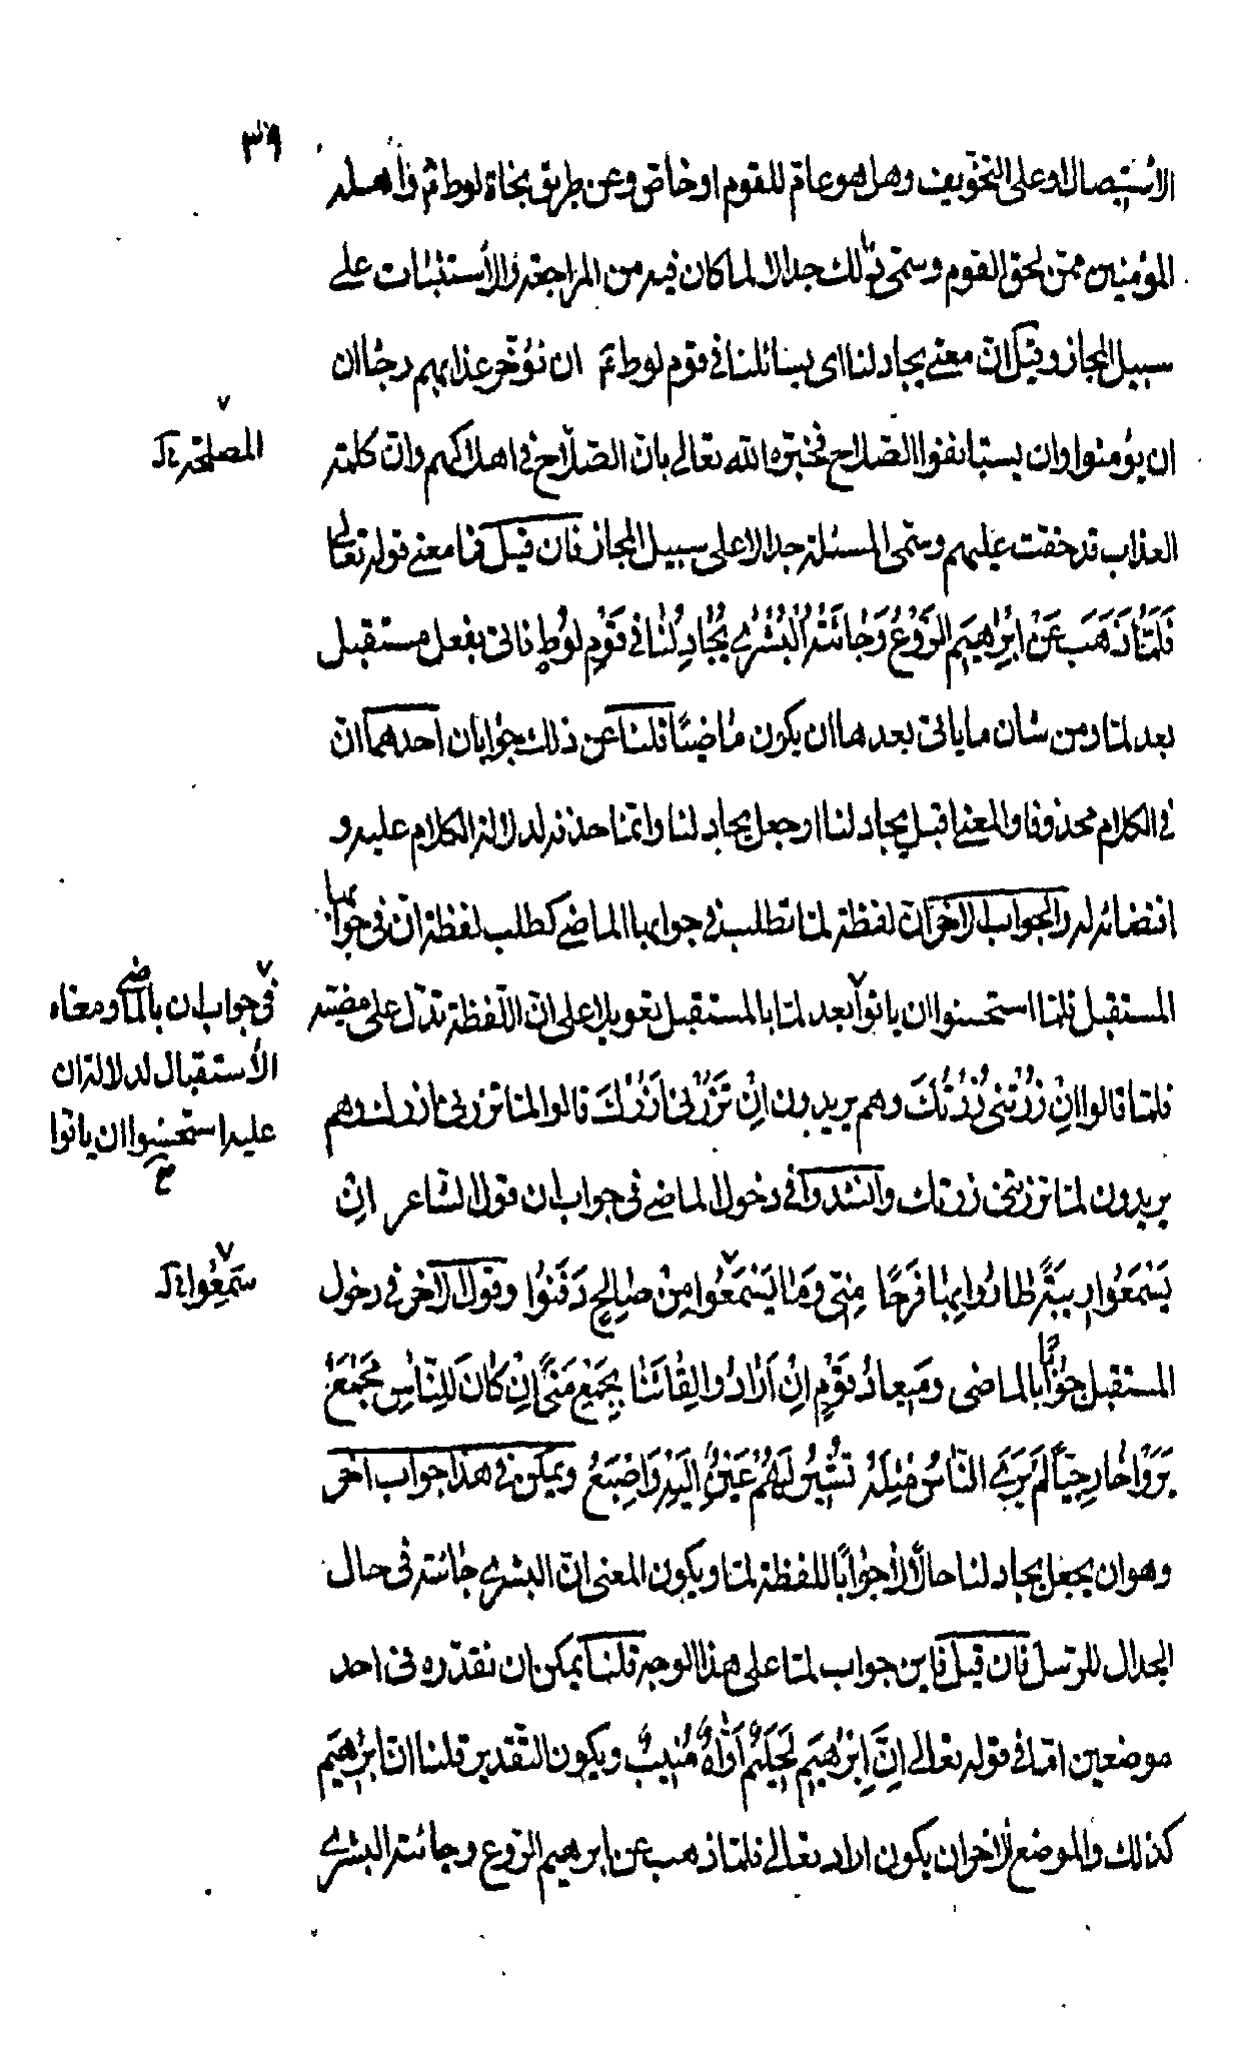 ٣٩
الأستيصال او على التخويف وهل هو عام للقوم او خاص وعن طريق نجاة لوط ع واهله
المؤمنين ممّن لحق القوم وسمّى ذلك جدالا لما كان فيه من المراجعة والأستثبات على
سبيل المجاز وقيل انّ معنى يجادلنا اى يسائلنا فى قوم لوط ع ان نؤخّر عذابهم رجاء ان
ان يؤمنوا وان يستانفوا الصّلاح فخبّره الله تعالى بانّ الصّلاح فى اهلاكهم وانّ كلمة
المصلحة
العذاب قد حقّت عليهم وسمّى المسئلة جدالا على سبيل المجاز فان قيل فما معنى قوله تعالى
فَلَمّٰا ذَهَبَ عَنْ اِبْرٰهِيمَ الرَّوْعُ وَجٰائَتْهُ الْبُشْرٰى يُجٰادِلُنٰا فى قَوْمِ لُوطٍ فاتى بفعل مستقبل
بعد لمّا ومن شان ما ياتى بعدها ان يكون مٰاضيًا قلنا عن ذلك جوابان احدهما انّ
فى الكلام محذوفا والمعنى اقبل يجادلنا او جعل يجادلنا وانّما حذفه لدلالة الكلام عليه و
اقتضائه له والجواب الاخر انّ لفظة لمّا تطلب فى جوابها الماضى كطلب لفظة ان فى جوابها
المستقبل فلمّا استحسنوا ان ياتوا بعد لمّا بالمستقبل تعويلا على انّ اللّفظة تدّل على مضيّه
فى جواب ان بالماضى ومعناه
الأستقبال لدلالة ان
عليه استحسنوا ان ياتوا
صح
فلمّا قالوا اِنْ زُرْتَنى زُرْتُكَ وهم يريدون اِنْ تَزُرْنى اَزُرْكَ قالوا لمّا تزرنى ازرك وهم
يريدون لمّا زرتنى زرتك وانشدوا فى دخول الماضى فى جواب ان قول الشّاعر اِنْ
يَسْمَعُوا رِيبَةً طٰارُوا بِهٰا فَرَحًا مِنّى وَمٰا يَسْمَعُوا مِنْ صٰالِحٍ دَفَنُوا وقول الاخر فى دخول
سَمِعُوا
المستقبل جوٰابًا بالماضى ومَيعادُ قَوْمٍ اِنْ اَرٰادُوا لِقٰائَنٰا بِجَمْعِ مَنًى اِنْ كٰانَ لِلنّٰاسِ مَجْمَعُ
يَرَوْا خٰارِجِيّاً لَمْ يَرَ النّٰاسُ مِثْلَهُ تُشيرُ لَهُمْ عَيْنٌ اِلَيْهِ وَاِصْبَعُ ويمكن فى هذا جواب اخر
وهو ان يجعل يجادلنا حالًا لا جوٰابًا للفظة لمّا ويكون المعنى انّ البشرى جائته فى حال
الجدال للرّسل فان قيل فاين جواب لمّا على هذا الوجه قلنا يمكن ان نقدّره فى احد
موضعين امّا فى قوله تعالى اِنَّ اِبْرٰهيمَ لَحَليمٌ اَوّٰاهٌ مُنيبٌ ويكون التّقدير قلنا انّ ابرٰهيم
كذلك والموضع الاخر ان يكون اراد تعالى فلمّا ذهب عن ابرهيم الرّوع وجائته البشرى